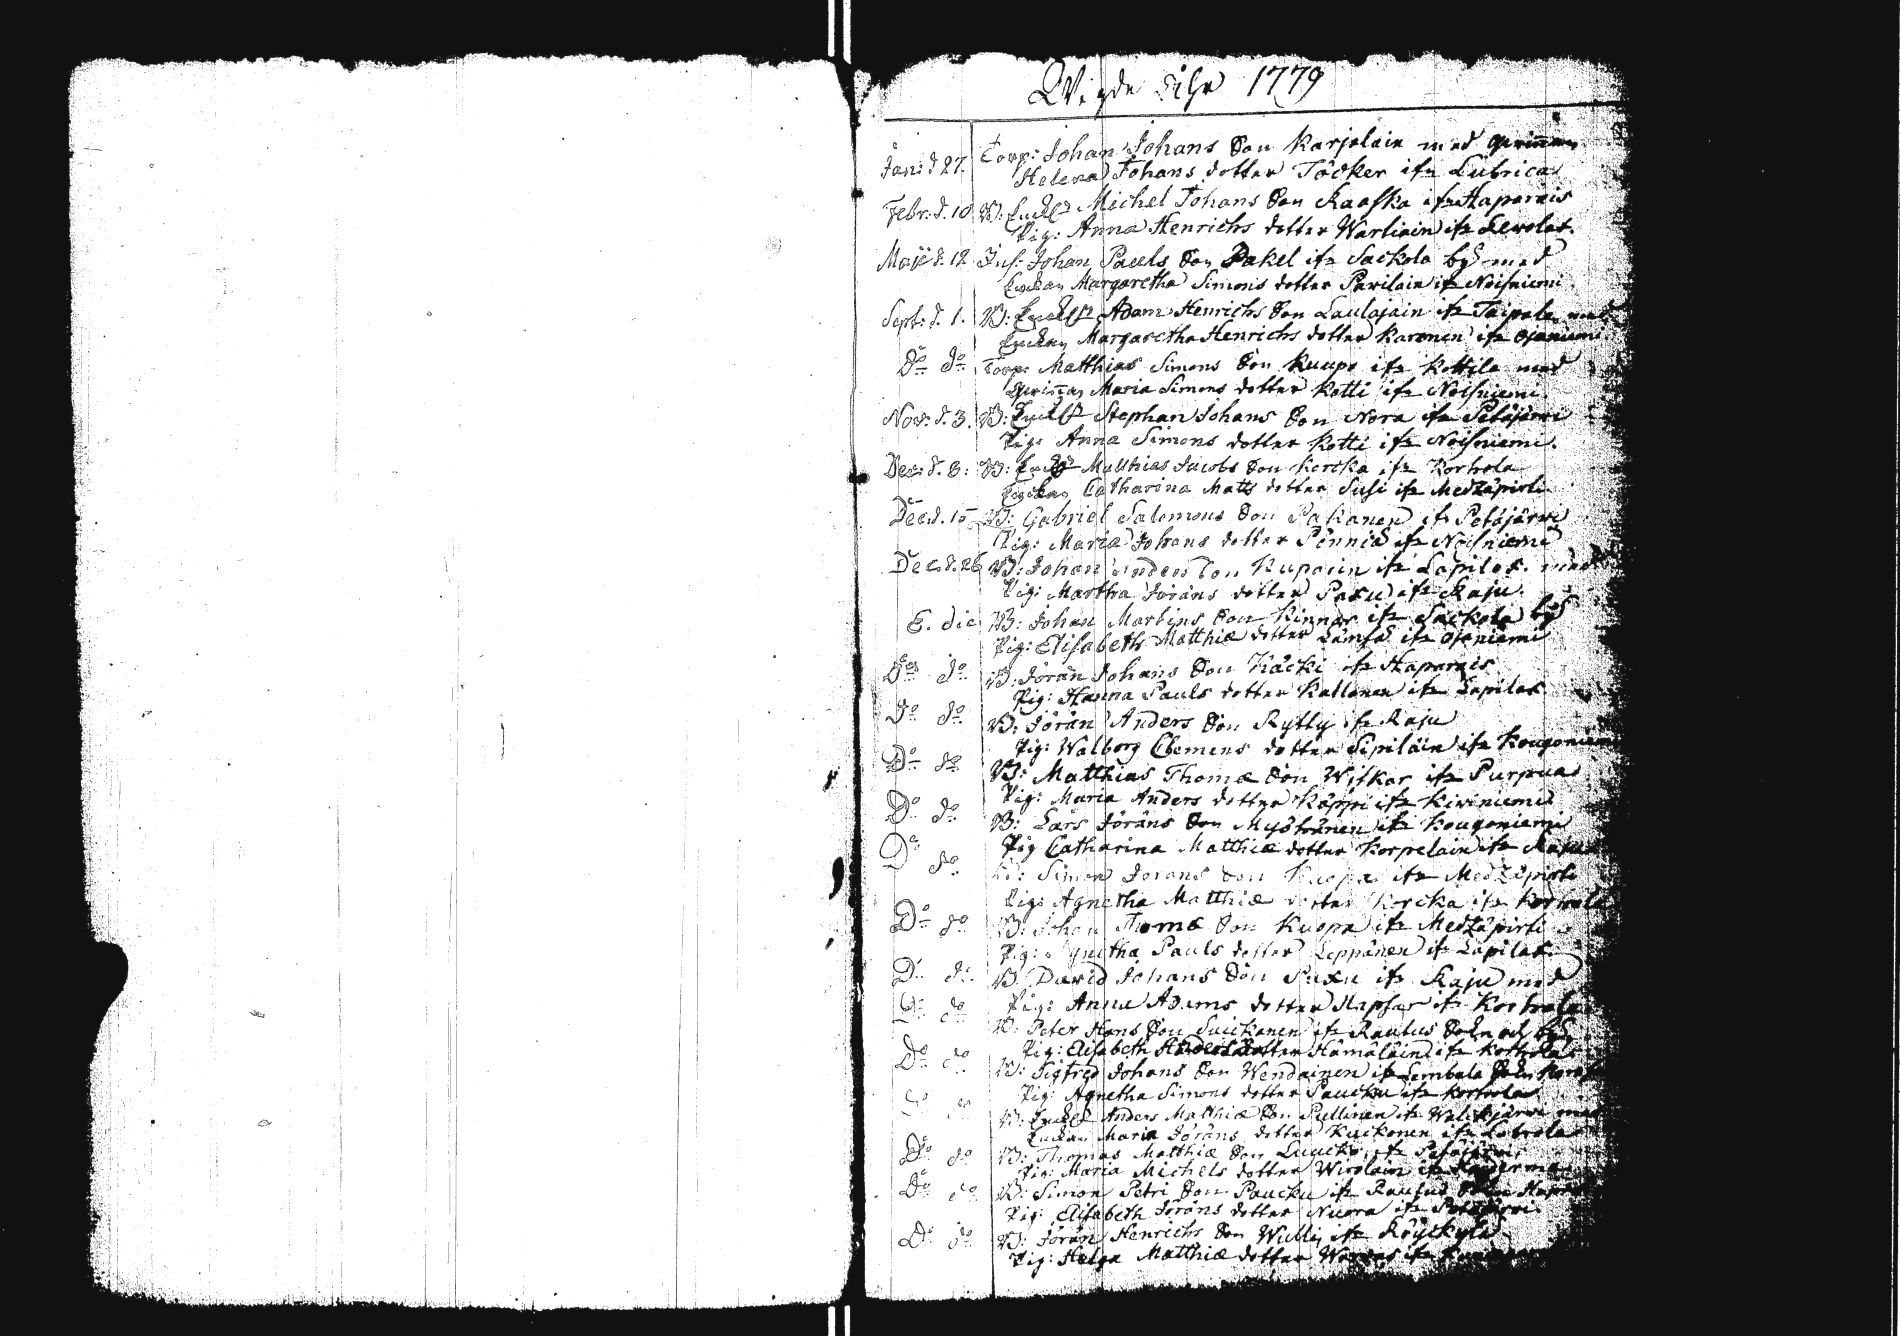 Wigde åhr 1779
Jan: d 27. Torp: Johan Johans Son Karjalain med qwinnan
Helena Johans dotter Täcker ifr Lubrica
Febr: d. 10 B: Enckl: Michel Johans Son Raaska ifr Haparais
Pig: Anna Henrichs dotter Warliain ifr
Maji d. 12 Inh: Johan Pauls Son Pakel ifr Sackola by med
Enckan Margaretha Simons dotter Pavilain ifr Noisniemi
Sept: d. 1. B: Enckl: Adam Henrichs Son Laulajain ifr Taipale med
Enckan Margaretha Henrichs dotter Karonen ifr Ojaniemi
Do do Torp: Matthias Simons Son Kuups ifr Kottila med
qwinnan Maria Simons dotter Kotti ifr Noisniemi.
Nov: d. 3. B: Enckl: Stephan Johans Son Nora ifr Petäjärwi
Pig: Anna Simons dotter Kotti ifr Noisniemi.
Dec: d. 8: B: Enckl: Matthias Jacobs Son Korcka ifr Korhola
Enckan Catharina Matts dotter Susi ifr Medzäpirti
Dec: d. 15 B: Gabriel Salomons Son Pakanen ifr Petäjärwi
Pig: Maria Johans dotter Pönniä ifr Noisniemi
Dec. d. 26 B: Johan Anders Son Kupain ifr Lapilax. med
Pig: Martha Jörans dotter Paxu ifr Raju.
E. die B: Johan Martins Son Kinnar ifr Sackola by
Pig: Elisabeth Matthiæ dotter Lämsä ifr Ojaniemi
Do do B: Jöran Johans Son Käcki ifr Haparais
Pig: Hanna Pauls dotter Kallonen ifr Lapilax
Do do B: Jöran Anders Son Rytty ifr Raju
Pig: Walborg Clemens dotter Sipiläin ifr Kougoniemi
Do do B: Matthias Thomæ Son Wiskar ifr Purpua
Pig: Maria Anders dotter Käppi ifr Kiviniemi
Do do B: Lars Jörans Son Myöhänen ifr Kougoniemi
Pig Catharina Matthiæ dotter Korpelain ifr Raju
Do do B: Simon Jörans Son Kuopa ifr Medzäpirti
Pig: Agnetha Matthiæ dotter Korcka ifr Korhola
Do do B: Johan Thomæ Son Kuopa ifr Medzäpirti
Pig: Agnetha Pauls dotter Leppänen ifr Lapilax.
Do do B: David Johans Son Paxu ifr Raju med
Pig: Anna Adams dotter Napsar ifr Korhola
Do do B: Peter Hans Son Suickanen ifr Rautus Sokn och by
Pig: Elisabeth Anders dotter Hämäläin ifr Korhola
Do do B: Sigfred Johans Son Wendainen ifr Lembala Sokn
Pig: Agnetha Simons dotter Paucku ifr Korhola
Do do B: Enckl: Anders Matthiæ Son Pullinen ifr Walckjärwi med
Enckan Maria Jörans dotter Kuckonen ifr
Do do B: Thomas Matthiæ Son Luucko ifr Petäjärwi
Pig: Maria Michels dotter Wirolain ifr
Do do B: Simon Petri Son Paucku ifr Rautus Sokn
Pig: Elisabeth Jörans dotter Nuora ifr Petäjärwi.
Do do B: Jöran Henrichs Son Willi ifr Röyckylä
Pig: Helga Matthiæ dotter ifr